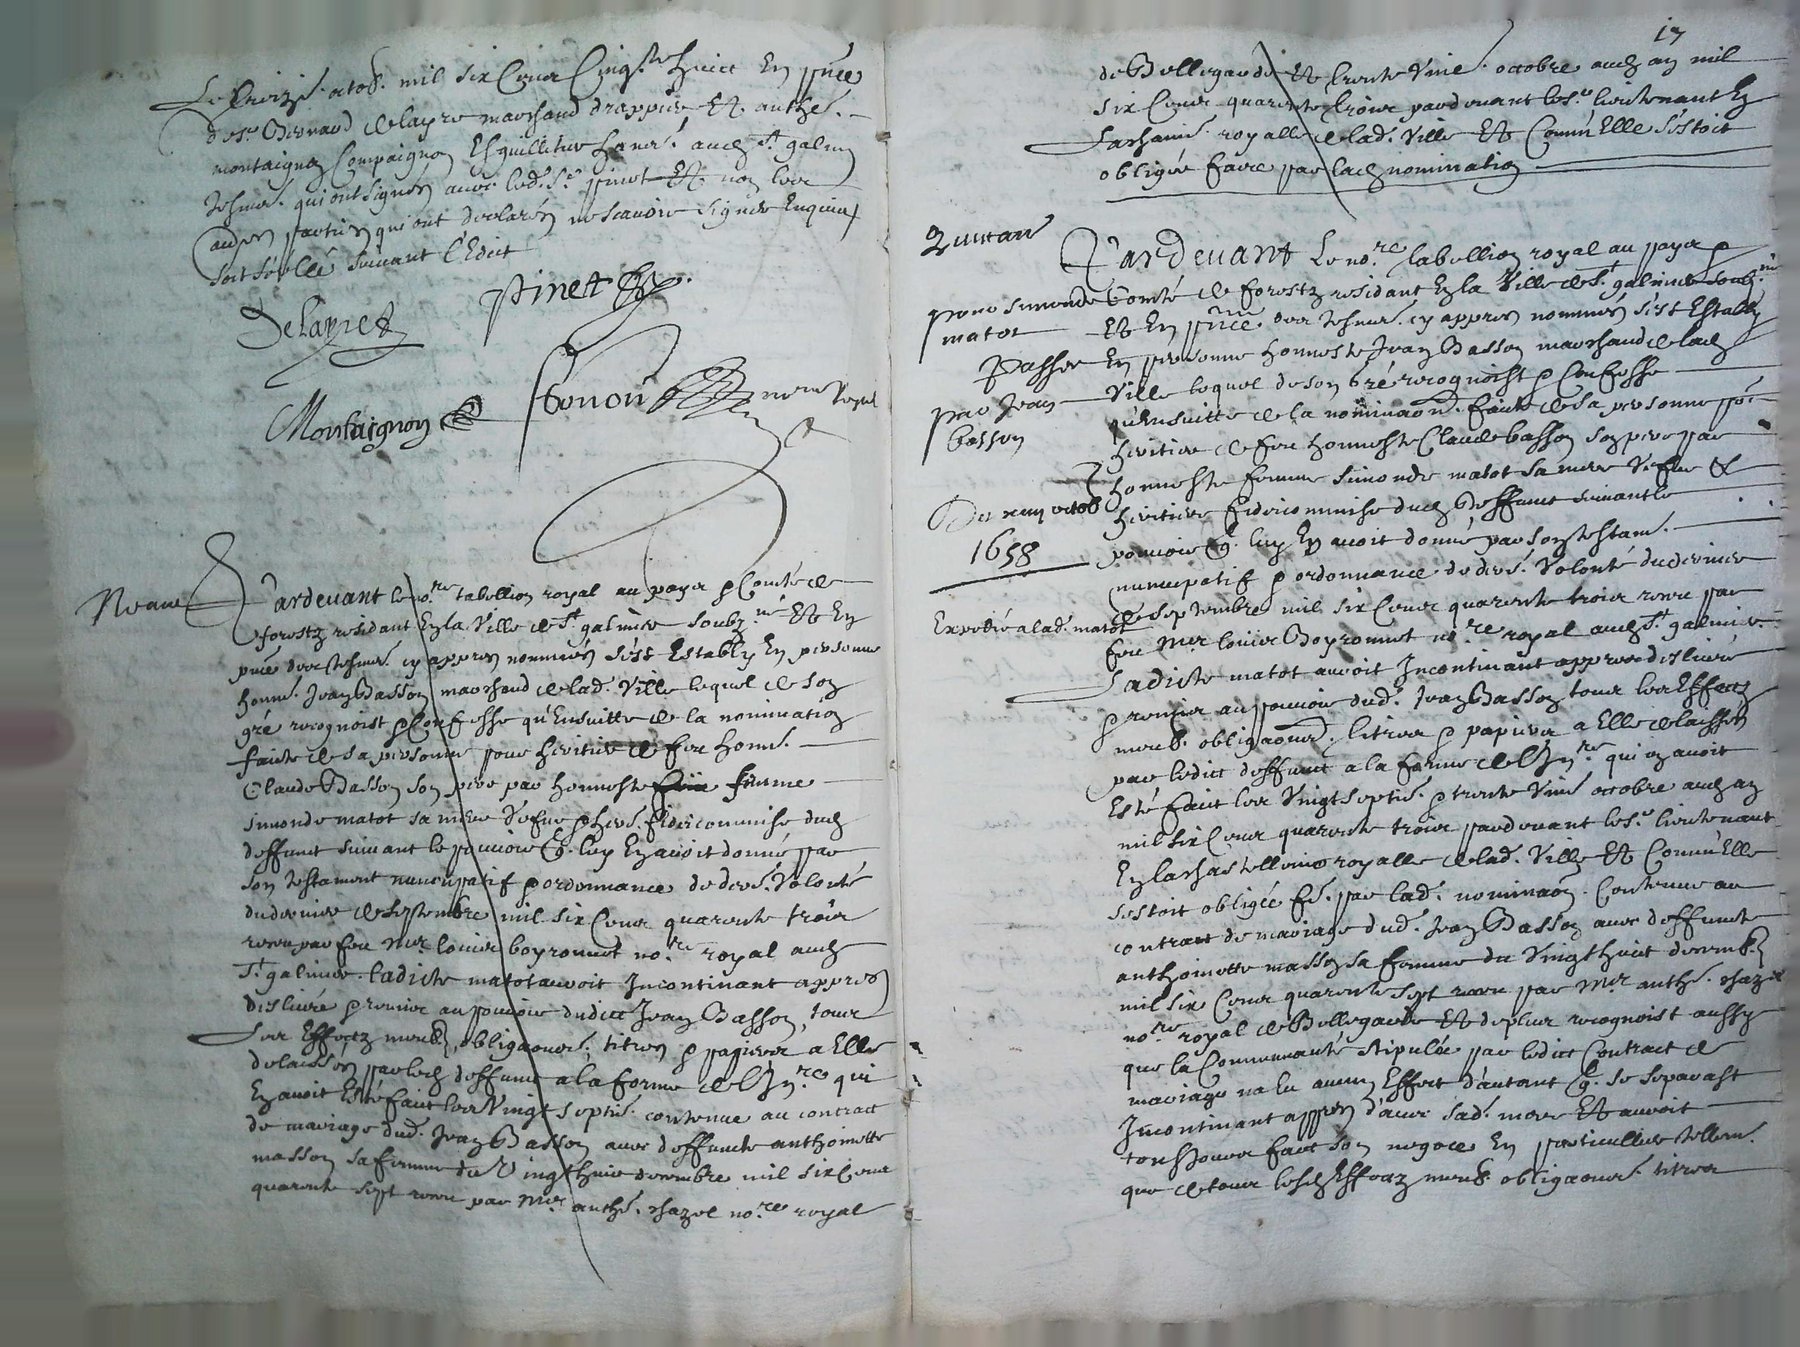 Le treizie. octob. mil six Cens Cinqte huict En pnce
de sr. Bernaud Delayre marchand drappier Et anthe.
montaignon Compaignon Esguillitier hans. aud St. galmier
tesmoi. qui ont signés avec led. sr. pinet Et non les
aues parties qui ont declarés ne scavoir signer Enquis
soit séellé suivant l'Edict
Delayre
Pinett
Montaignon
Ponon
nore Royal
Neant
Pardevant le nore. tabellion royal au pays & Comté de
forestz residant En la Ville de St. galmier soubzné Et En
pnce des tesmoi. cy appres nommés s'est Estably En personne
honne. Jean Basson marchand de lad. Ville lequel de son
gré recognoist & Confesse qu'Ensuitte de la nomination
faicte de sa personne pour heritier de feu honne.
Claude Basson son pere par honneste femme
simonde matot sa mere Vefve & here. fideicommise dud
deffunct suivant le pouvoir q. luy En avoit donné par
son testament nuncupatif & ordonnance de dere. Volonté
du dernier de septembre mil six Cens quarente trois
receu par feu Mre louis boyronnet nore. royal aud
St. galmier. ladicte matot auroit Incontinant appres
deslivré & remise au pouvoir dudict Jean Basson, tous
Les Effectz meub., obligaons. titres & papiers a Elle
delaissés par led deffunct a la forme de l'Invre qui
En avoit Esté faict les Vingt septie. contenue au contract
de mariage dud. Jean Basson avec deffuncte anthoinette
masson sa femme du Vingt huict decembre mil six Cens
quarente sept receu par Mre anthe. chazel nore. royal
17
de Bellegarde Et trente Unie. octobre aud an mil
six Cens quarente trois pardevant le sr. lieutenant En
La chaste. royalle de lad. Ville Et Comm'Elle s'estoit
obligée faire par lad nomination
Quittance
pour simonde
matot
Passée
par Jean
basson
Du xiiij octob
1658
Expedié a lad. matot
Pardevant Le nore. tabellion royal au pays &
Comté de forestz residant En la Ville de St. galmier soubzné
Et En pnce des tesmoi. cy appres nommés s'est Estably
En personne honneste Jean Basson marchand de lad
Ville lequel de son gré recognoist & Confesse
qu'Ensuitte de la nominaon. faicte de sa personne pour
heritier de feu honneste Claude basson son pere par
honneste femme simonde matot sa mere Vefve &
heritiere fideicommise dud deffunct suivant le
pouvoir q. luy En avoit donné par son testam.
nuncupatif & ordonnance de dere. Volonté du dernier
de septembre mil six Cens quarente trois receu par
feu Mre louis Boyronnet nore. royal aud St. galmier.
Ladicte matot auroit Incontinant appres deslivré
& remise au pouvoir dud. Jean Basson tous les Effectz
meub. obligaons. tiltres & papiers a Elle delaissés
par ledict deffunct a la forme de l'Invre. qui en avoit
Esté faict les Vingt septie. & trente Unie octobre aud an
mil six Cens quarente trois pardevant le sr. lieutenant
En la chastellenie royalle de lad. Ville Et Comm'Elle
s'estoit obligée fe. par lad. nominaon. Contenue au
contract de mariage dud. Jean Basson avec deffuncte
anthoinette masson sa femme du Vingt huict decemb
mil six Cens quarente sept receu par Mre anthe. chazel
nore. royal de Bellegarde Et de plus recognoist aussy
que la Communauté stipulée par ledict Contract de
mariage na Eu aucun Effect d'autant q. se separast
Incontinant appres d'avec sad. mere Et auroit
tousjours faict son negoce En particullier tellem.
que de tous lesd Effectz meub. obligaons. titres